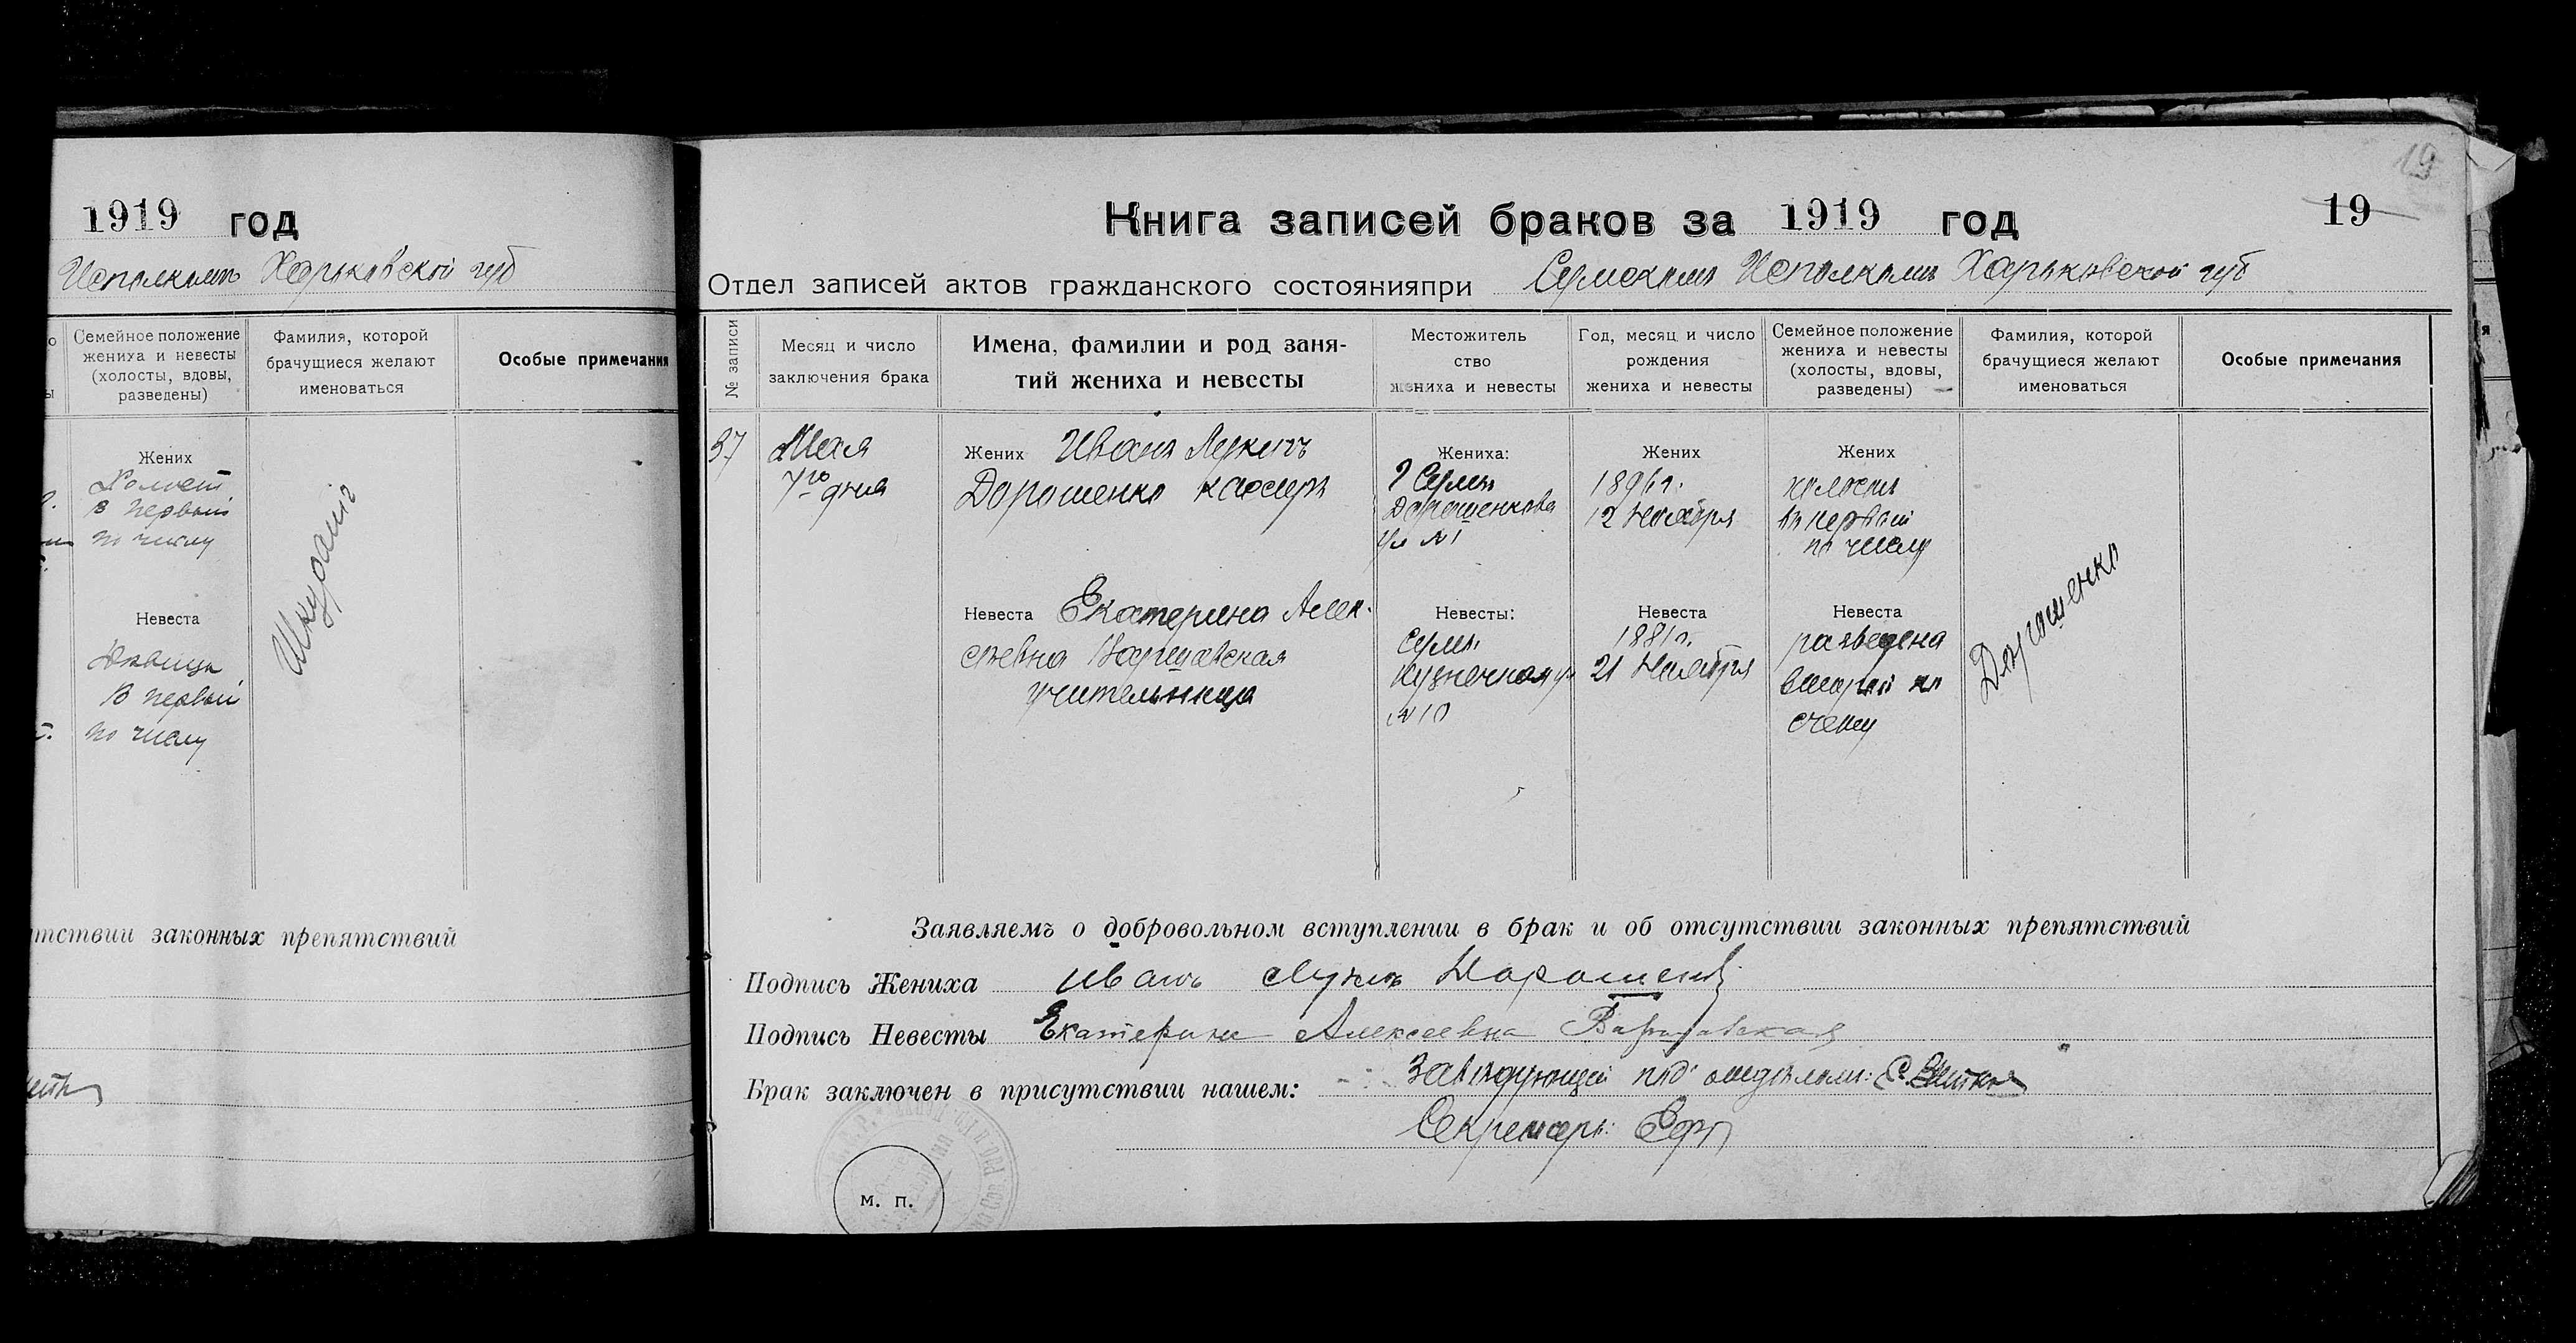 1919 год
Исполкомъ Харьковской губ
Семейное положение
жениха и невесты
(холосты, вдовы,
разведены)
Фамилия, которой
брачущиеся желают
именоваться
Особые примечания
Жених
Холост
В первый
по числу
Невеста
Девица
В первый
по числу
тствии законных препятствий
19
Книга записей браков за 1919 год
19
Отдел записей актов гражданского состоянияпри Сумском Исполкомъ Харьковской губ
№ записи
Месяц и число
заключения брака
Имена, фамилии и род заня-
тий жениха и невесты
Местожитель
ство
жениха и невесты
Год, месяц и число
рождения
жениха и невесты
Семейное положение
жениха и невесты
(холосты, вдовы,
разведены)
Фамилия, которой
брачущиеся желают
именоваться
Особые примечания
37
Мая
7го дня
Жених Иванъ Лукичъ
Дорошенко кассиръ
Жениха:
Г Сумы
Дорошенкова
ул №1
Жених
1896г.
12 Ноября
Жених
холостъ
въ первый
по числу
Невеста Екатерина Алек-
сѣевна Варшавская
учительница
Невесты:
Сумы
Кузнечная у
№10
Невеста
1881г.
21 Ноября
Невеста
разведена
второй по
счету
Дорошенко
Заявляемъ о добровольном вступлении в брак и об отсутствии законных препятствий
Подпись Жениха Иванъ Лукичъ Дорошенко
Подпись Невесты Екатерина Алексеевна Варшавская
Брак заключен в присутствии нашем: Завѣдующий подъ отдѣломъ:
Секретарь:
М. П.